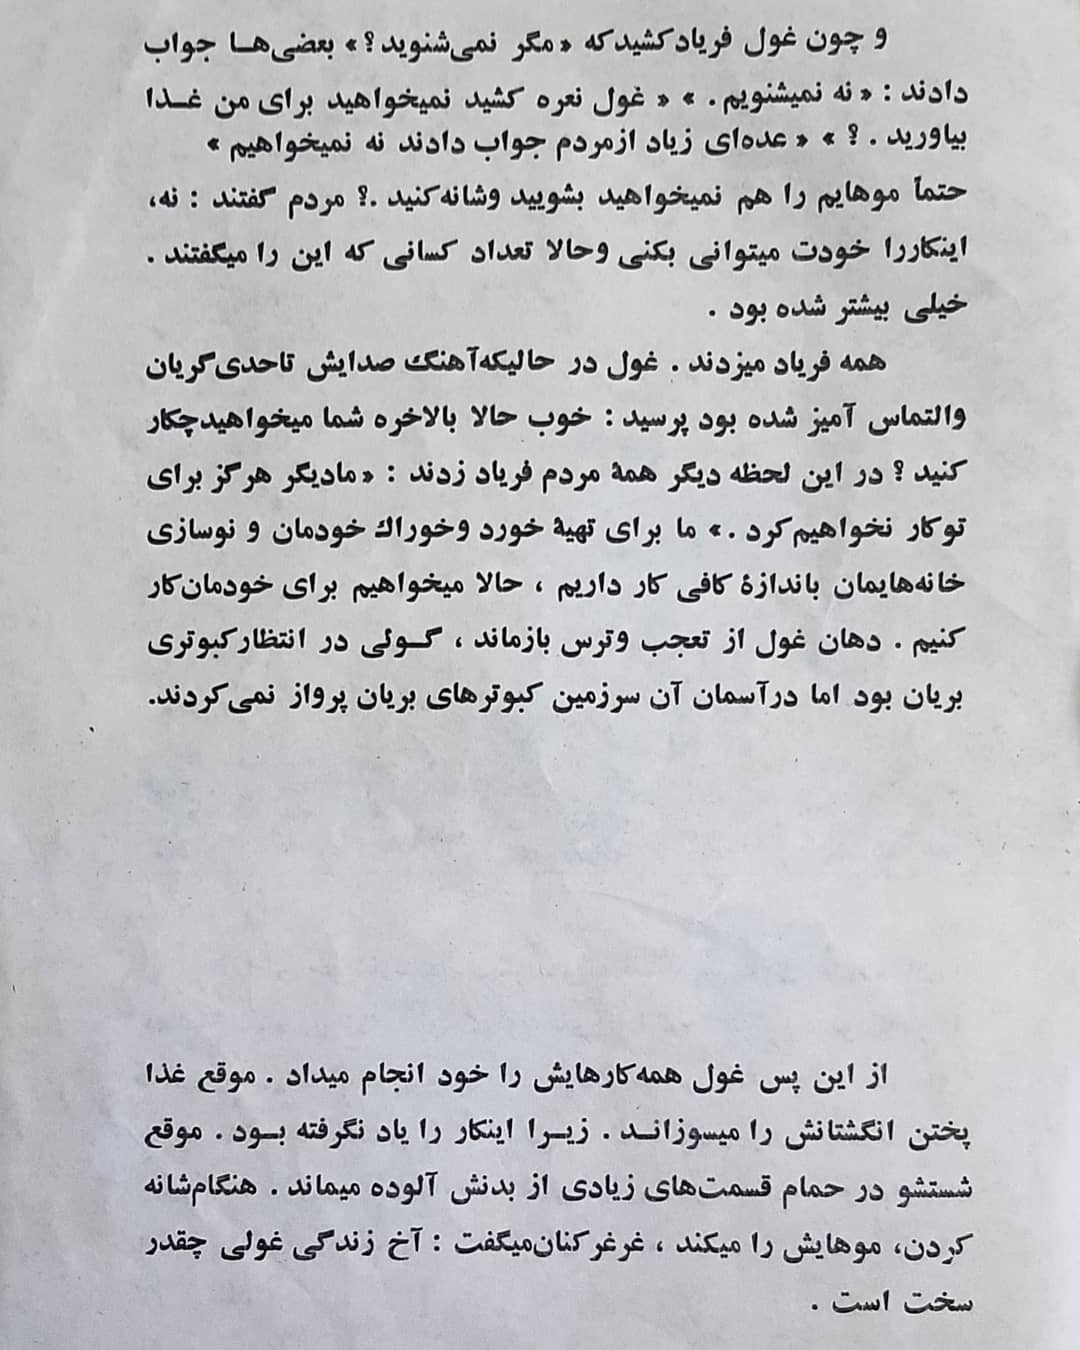 و چون غول فریاد کشید که « مگر نمی‌شنوید ؟ » بعضی‌ها جواب
دادند : « نه نمیشنویم . » « غول نعره کشید نمیخواهید برای من غذا
بیاورید . ؟ » « عده‌ای زیاد ازمردم جواب دادند نه نمیخواهیم »
حتماً موهایم را هم نمیخواهید بشویید وشانه کنید .؟ مردم گفتند : نه،
اینکاررا خودت میتوانی بکنی وحالا تعداد کسانی که این را میگفتند .
خیلی بیشتر شده بود .
همه فریاد میزدند . غول در حالیکه آهنگ صدایش تاحدی گریان
والتماس آمیز شده بود پرسید : خوب حالا بالاخره شما میخواهیدچکار
کنید ؟ در این لحظه دیگر همهٔ مردم فریاد زدند : « مادیگر هرگز برای
توکار نخواهیم کرد . » ما برای تهیهٔ خورد وخوراك خودمان و نوسازی
خانه‌هایمان باندازهٔ کافی کار داریم ، حالا میخواهیم برای خودمان کار
کنیم . دهان غول از تعجب وترس بازماند ، گولی در انتظار کبوتری
بریان بود اما درآسمان آن سرزمین کبوترهای بریان پرواز نمی‌کردند.
از این پس غول همه کارهایش را خود انجام میداد . موقع غذا
پختن انگشتانش را میسوزاند . زیرا اینکار را یاد نگرفته بود . موقع
شستشو در حمام قسمت‌های زیادی از بدنش آلوده میماند . هنگام شانه
کردن، موهایش را میکند ، غرغر کنان میگفت : آخ زندگی غولی چقدر
سخت است .